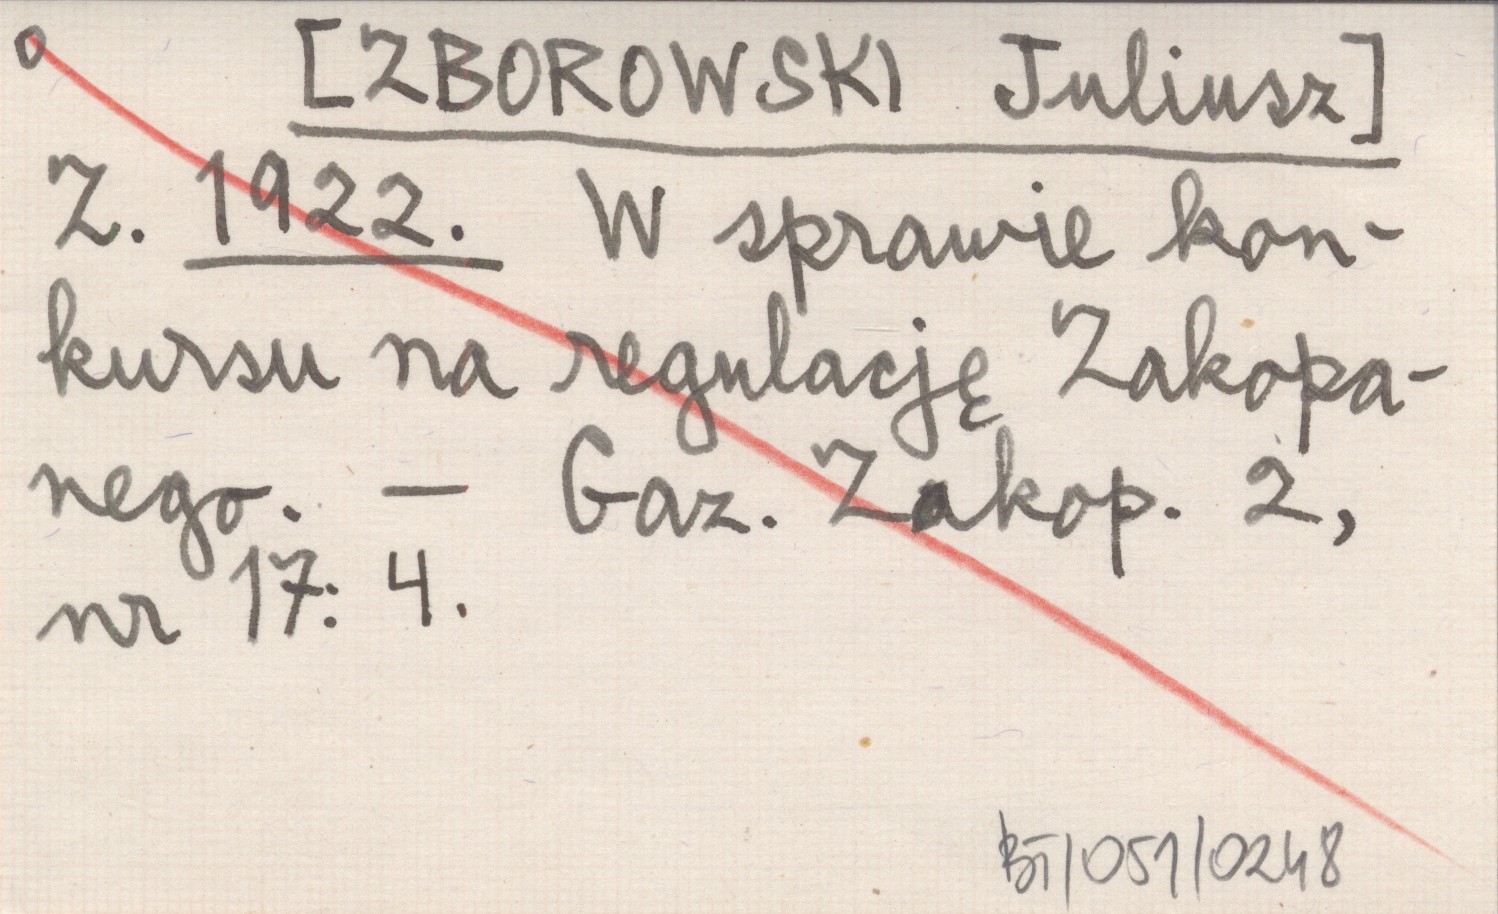 o [ZBOROWSKI Juliusz]
Z. 1922. W sprawie kon-
kursu na regulację Zakopa-
nego. — Gaz. Zakop. 2,
nr 17: 4.
BT/051/0248